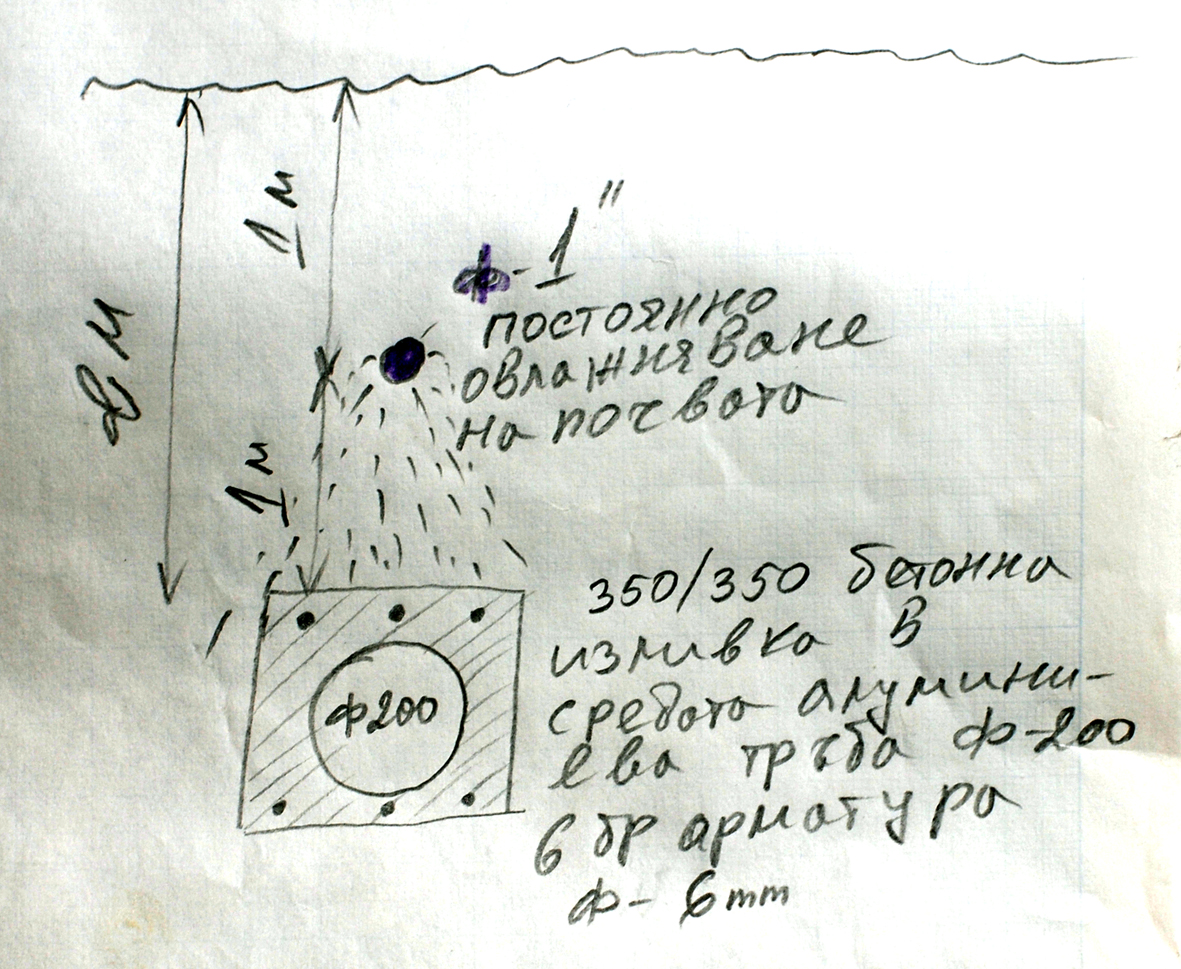 1 м
2 м
ф-1"
постоянно
овлажняване
на почвата
1 м
350/350 бетонна
изливка в
средата алумини-
ева тръба ф-200
6 бр арматура
ф- 6mm
ф200